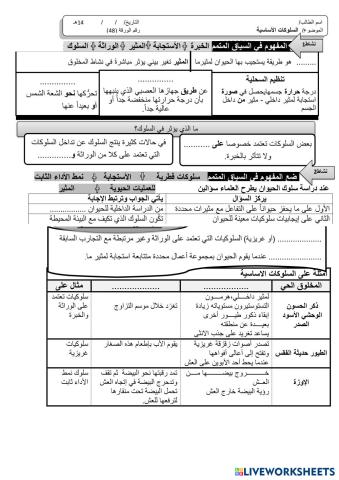 اسم الطالب: التاريخ: / / 14هـ
الموضوع: السلوكات الأساسية رقم الورقة (48)
نشاط1 المفهوم في السياق المتمم الخبرة الأستجابة المثير الوراثة السلوك
............ هو طريقة يستجيب بها الحيوان لمثير ما
المثير تغير بيئي يؤثر مباشرة في نشاط المخلوق
تنظيم السحلية
درجة حرارة جسمها يحصل في صورة استجابة لمثير داخلي - مثير من داخل الجسم
عن طريق جهازها العصبي الذي ينبهها بأن درجة حرارتها منخفضة جداً أو عالية جداً.
تحركها نحو أشعة الشمس أو بعيداً عنها
ما الذي يؤثر في السلوك؟
بعض السلوكات تعتمد خصوصا على ............ ولا تتأثر بالخبرة.
في حالات كثيرة ينتج السلوك عن تداخل السلوكات التي تعتمد على كلا من الوراثة و ............
نشاط2 ضع المفهوم في السياق المتمم سلوكات فطرية الأستجابة نمط الأداء الثابت
عند دراسة سلوك الحيوان يطرح العلماء سؤالين للعمليات الحيوية المثير
يركز السؤال يأتي الجواب وترتبط الإجابة
الأول على ما يحفز حيواناً على التفاعل مع مثيرات محددة من الدراسة الداخلية للحيوان ............
الثاني على إيجابيات سلوكيات معينة للحيوان تكون السلوك الذي تكيف مع البيئة المحيطة
............ (أو غريزية) السلوكيات التي تعتمد على الوراثة وغير مرتبطة مع التجارب السابقة
............ عندما يقوم الحيوان بمجموعة أعمال محددة متتابعة استجابة لمثير ما
أمثلة على السلوكات الأساسية
المخلوق الحي .................. .................. مثال على
ذكر الحسون الوحشي الأسود الصدر
لمثير داخلي، هرمون التستوستيرون مستوياته زيادة إبقاء ذكور طيور أخرى بعيدة عن منطقته يساعد تغريد على جذب الانثى
تغرد خلال موسم التزاوج
سلوكيات تعتمد على الوراثة والخبرة
الطيور حديثة الفقس
تصدر أصوات زقزقة غريزية وتفتح إلى أعالي أفواهها عندما يحط أحد الأبوين على العش
يقوم الأب بإطعام هذه الصغار
سلوكيات غريزية
الإوزة
خروج بيضها من العش رؤية البيضة خارج العش
تمد رقبتها نحو البيضة ثم تقف وتدحرج البيضة في اتجاه العش تحمل البيضة تحت منقارها لترفعها للعش.
سلوك نمط الأداء ثابت
LIVEWORKSHEETS